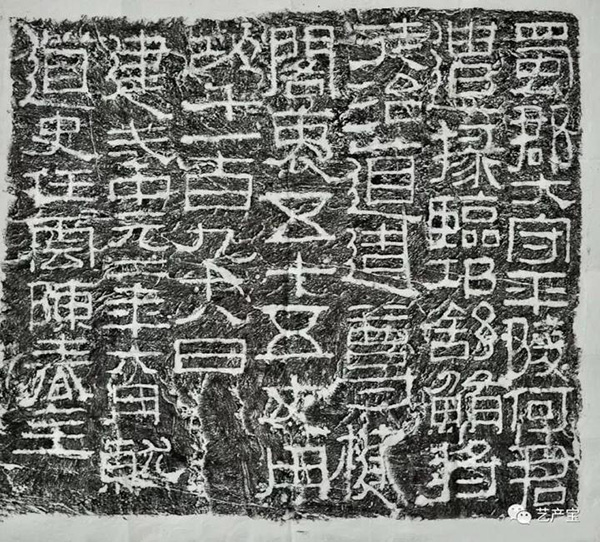 蜀郡大守平陵何君
遣掾臨邛舒鮪將
徒治道造尊楗
閣袤五十五丈用
功千一百九十八日
建武中元二年六月就
道史任雲陳春主
艺产宝